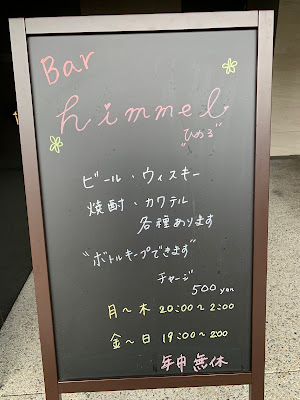 Bar
himmel
"ひめる"
ビール・ウィスキー
焼酎・カクテル
各種あります
"ボトルキープできます"
チャージ
500yen
月〜木 20:00〜2:00
金〜日 19:00〜2:00
年中無休